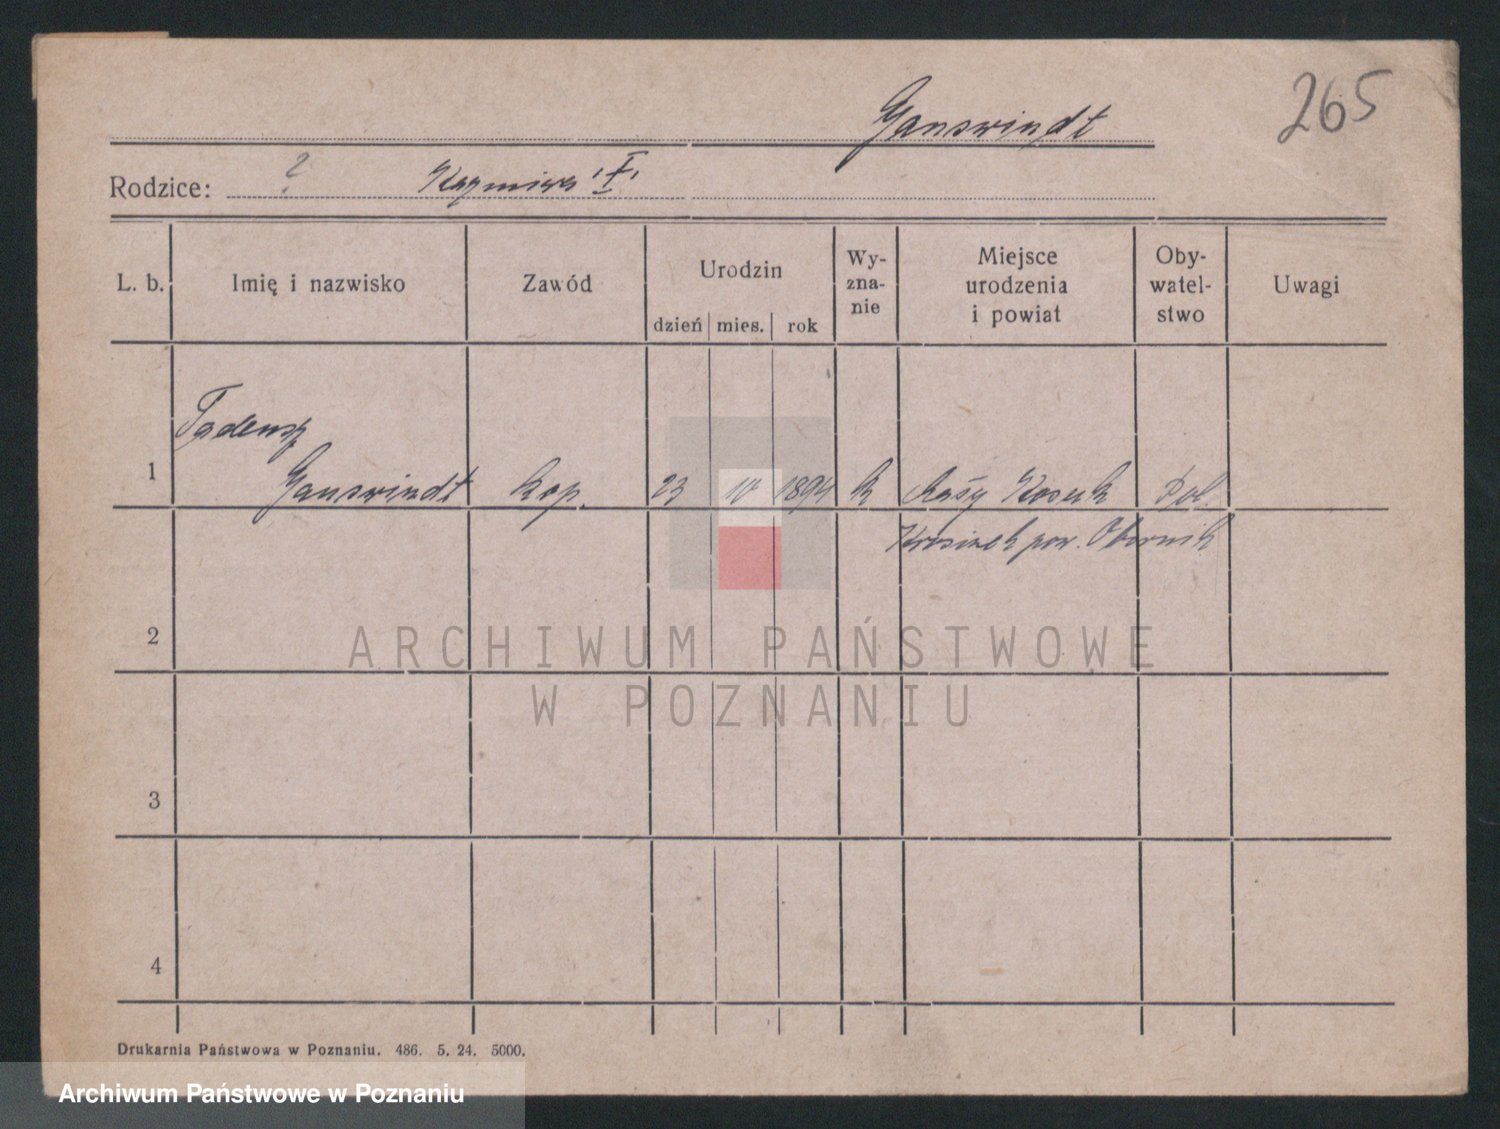 265
Ganswindt
Rodzice: ? Kazmiera
L. b. Imię i nazwisko Zawód Urodzin dzień mies. rok Wy-zna-nie Miejsce urodzenia i powiat Oby-watel-stwo Uwagi
Tadeusz
1 Ganswindt kap. 23 10 1894 k Pol.
pow. Obornik
2
ARCHIWUM PAŃSTWOWE
W POZNANIU
3
4
Drukarnia Państwowa w Poznaniu. 486. 5. 24. 5000.
Archiwum Państwowe w Poznaniu